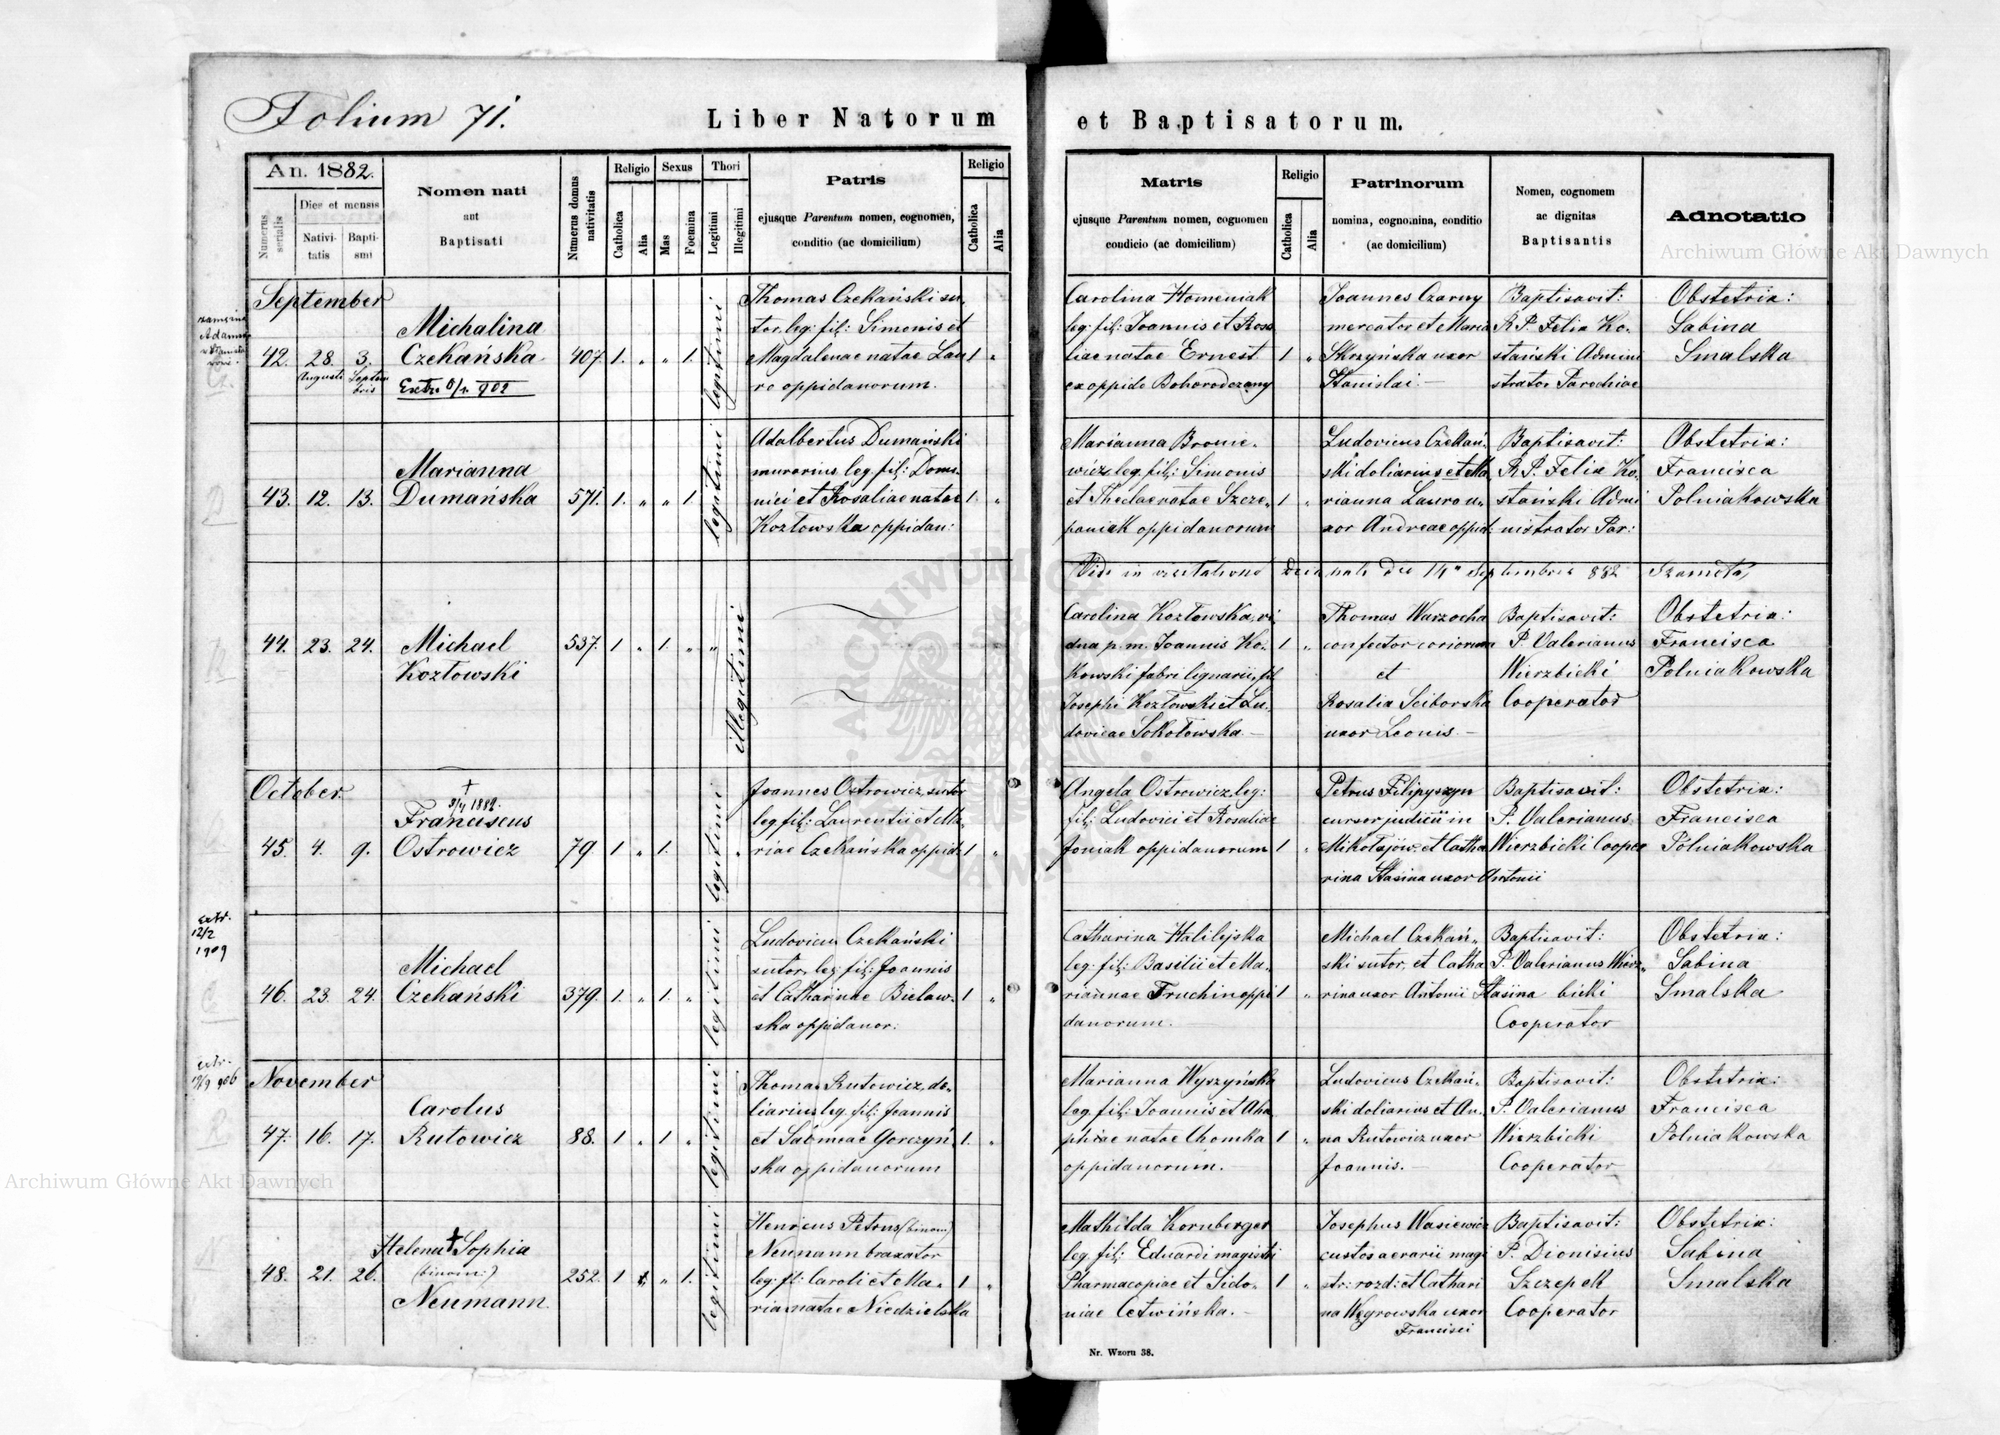 Folium 71.
Liber Natorum et Baptisatorum.
An. 1882.
Numerus serialis
Dies et mensis
Nativitatis
Baptismi
Nomen nati
aut
Baptisati
Numerus domus nativitatis
Religio
Catholica
Alia
Sexus
Mas
Foemina
Thori
Legitimi
Illegitimi
Patris
ejusque Parentum nomen, cognomen,
conditio (ac domicilium)
Religio
Catholica
Alia
Matris
ejusque Parentum nomen, cognomen
condicio (ac domicilium)
Religio
Catholica
Alia
Patrinorum
nomina, cognomina, conditio
(ac domicilium)
Nomen, cognomen
ac dignitas
Baptisantis
Adnotatio
September
42. 28. Augusti 3. Septembris
Michalina
Czekańska
Extr. 902
407. 1. 1.
legitimi
Thomas Czekański su-
tor leg: fil: Simonis et
Magdalenae natae Lau
ro oppidanorum.
1 "
Carolina Homeniak
leg: fil: Joannis et Rosa
liae natae Ernest
ex oppido Bohorodczany
1 "
Joannes Czarny
mercator et Maria
Skrzyńska uxor
Stanislai. —
Baptisavit:
R. P. Felix Ko-
stański Admini
strator Parochiae
Obstetrix:
Sabina
Smalska
43. 12. 13.
Marianna
Dumańska
571. 1. " " 1.
legitimi
Adalbertus Dumański
murarius leg. fil: Domi-
nici et Rosaliae natae
Kozłowska oppidan:
1. "
Marianna Bronie-
wicz leg. fil: Simonis
et Theclae natae Szcze-
paniak oppidanorum
1 "
Ludovicus Czekań-
ski doliarius et Ma
rianna Lauro u-
xor Andreae oppid:
Baptisavit:
R. P. Felix Ko-
stański Admi
nistrator Par:
Obstetrix:
Francisca
Polniakowska
Vidi in visitatione decanali die 14" Septembris 882
44. 23. 24.
Michael
Kozłowski
537. 1 " 1. " "
illegitimi
Carolina Kozłowska, vi
dua p. m. Joannis Ko-
kowski fabri lignarii, fil
Josephi Kozłowski et Lu-
dovicae Sokołowska —
1 "
Thomas Warzocha
confector coriorum
et
Rosalia Sciborska
uxor Leonis —
Baptisavit:
P. Valerianus
Wierzbicki
Cooperator
Obstetrix:
Francisca
Polniakowska
October.
45. 4. 9.
†
1882.
Franciscus
Ostrowicz
79 1 " 1. "
legitimi
Joannes Ostrowicz sutor
leg. fil: Laurentii et Ma-
riae Czekańska oppid:
1 "
Angela Ostrowicz leg:
fil: Ludovici et Rosaliae
Joniak oppidanorum
1 "
Petrus Filipyszyn
cursor judicii in
Mikołajów et Catha
rina Stasina uxor Antonii
Baptisavit:
P. Valerianus
Wierzbicki Cooper
Obstetrix:
Francisca
Polniakowska
extr.
12/2
1909
46. 23. 24.
Michael
Czekański
379. 1. " 1. "
legitimi
Ludovicus Czekański
sutor, leg: fil: Joannis
et Catharinae Bielaw-
ska oppidanor:
1 "
Catharina Halilejska
leg: fil: Basilii et Ma-
riannae Truchin oppi
danorum.
1 "
Michael Czekań-
ski sutor, et Catha
rina uxor Antonii Stasina
Baptisavit:
P. Valerianus Wierz-
bicki
Cooperator
Obstetrix:
Sabina
Smalska
extr.
19/9 906
November
47. 16. 17.
Carolus
Rutowicz
88. 1 " 1 "
legitimi
Thomas Rutowicz do-
liarius leg. fil: Joannis
et Salomeae Gorczyń-
ska oppidanorum
1. "
Marianna Wyszyńska
leg. fil: Joannis et Aga
phiae natae Chomka
oppidanorum. —
1 "
Ludovicus Czekań-
ski doliarius et An-
na Rutowicz uxor
Joannis.
Baptisavit:
P. Valerianus
Wierzbicki
Cooperator
Obstetrix:
Francisca
Polniakowska
48. 21. 26.
Helena † Sophia
(binom:)
Neumann
252. 1 " 1.
legitimi
Henricus Petrus (binom)
Neumann braxator
leg: fil: Caroli et Ma-
ria natae Niedzielska
1 "
Mathilda Kornberger
leg. fil: Eduardi magistri
Pharmacopiae et Sido-
niae Cetwińska. —
1 "
Josephus Wasiewicz
custos aerarii magi
str: rozd: et Cathari
na Węgrowska uxor
Francisci
Baptisavit:
P. Dionisius
Szczepek
Cooperator
Obstetrix:
Sabina
Smalska
Nr. Wzoru 38.
Archiwum Główne Akt Dawnych
Archiwum Główne Akt Dawnych